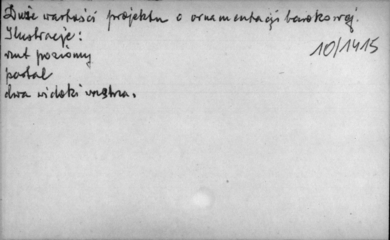 Duże wartości projektu o ornamentacji barokowej.
Ilustracje:
10/1415
rzut poziomy
portal
dwa widoki wnętrza.